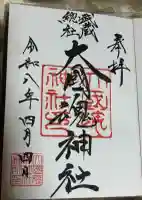 奉拝
武蔵
総社
大國魂神社
令和八年四月四日